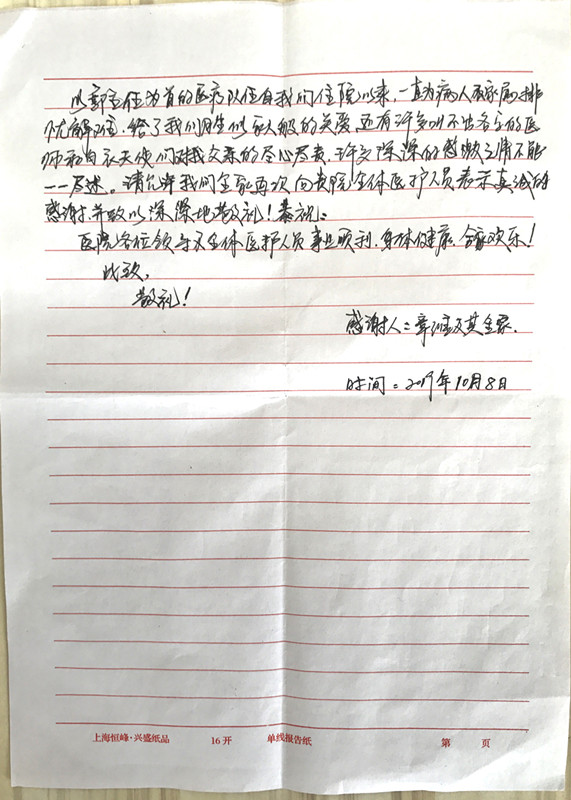 以郭主任为首的医疗队伍自我们住院以来，一直为病人和家属排
忧解难，给了我们胜似家人般的关爱，还有许多叫不出名字的医
师和白衣天使们对我父亲的尽心尽责，许多深深的感激之情不能
一一尽述。请允许我们全家再次向贵院全体医护人员表示真诚的
感谢，并致以深深地敬礼！恭祝：
医院各位领导及全体医护人员事业顺利，身体健康，合家欢乐！
此致，
敬礼！
感谢人：章 及其全家.
时间：2019年10月8日
上海恒峰·兴盛纸品 16开 单线报告纸 第 页